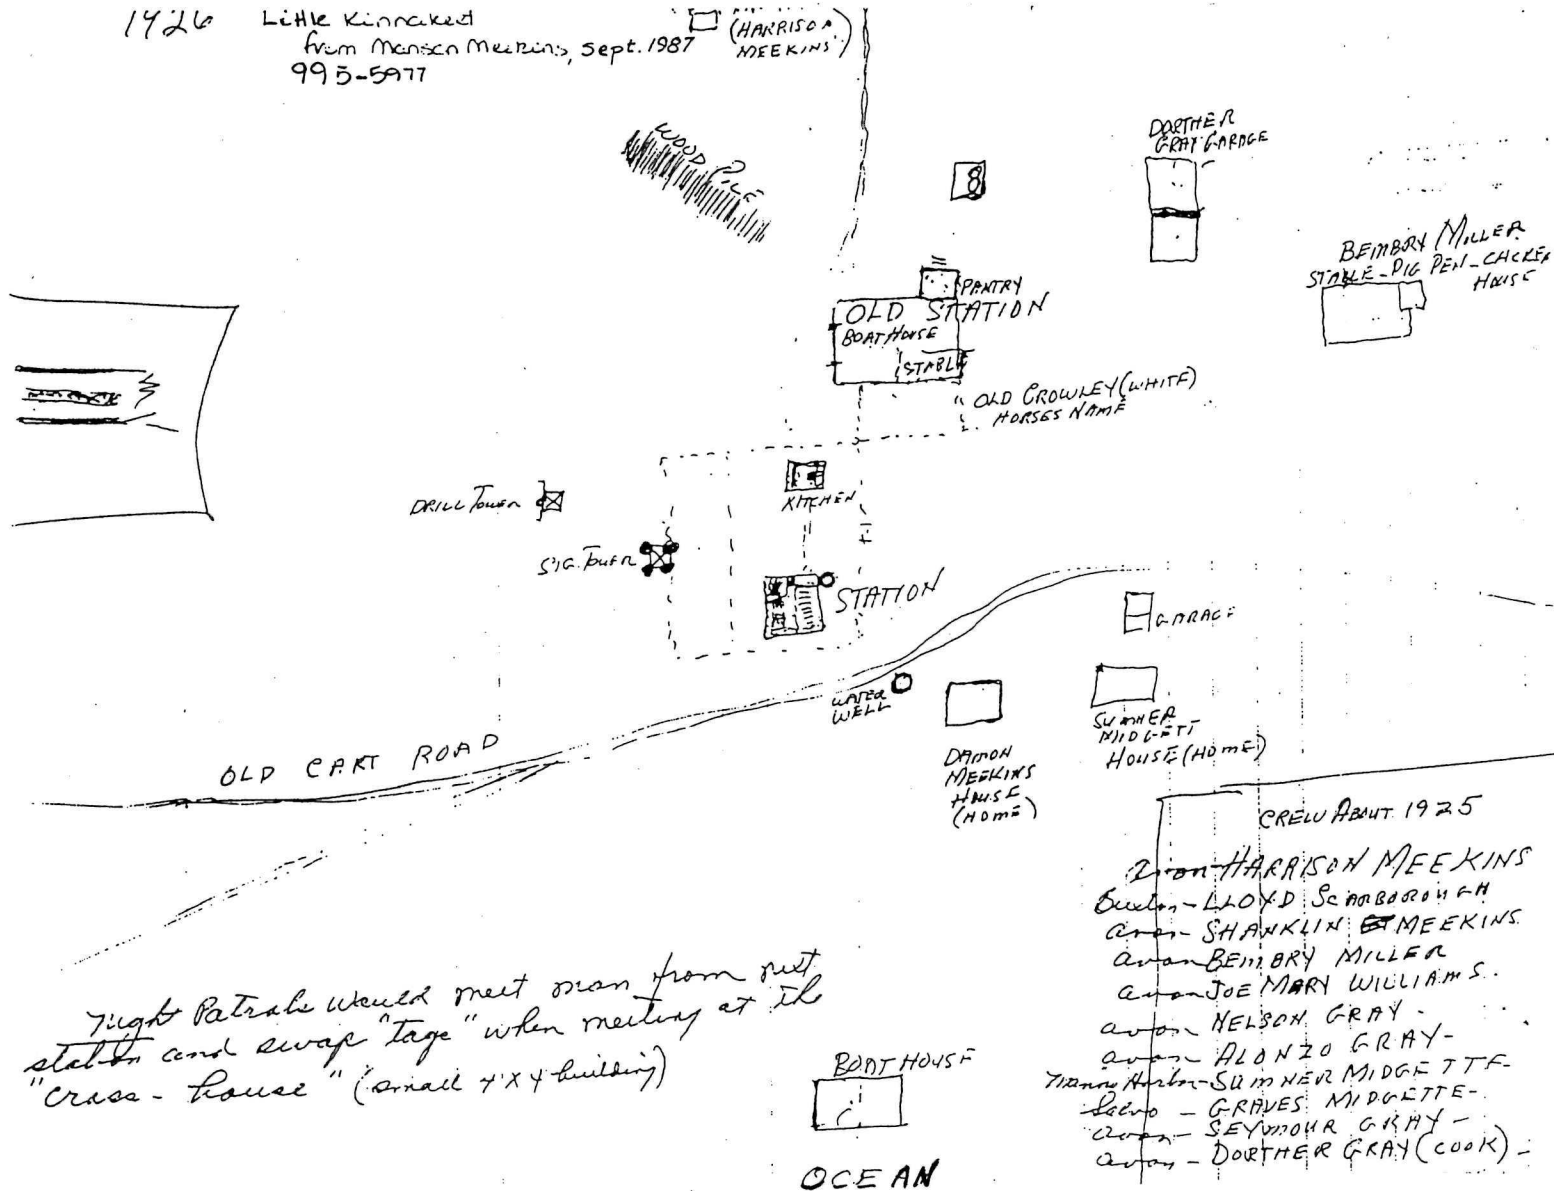 1926 Little Kinnakeet
from Manson Meekins, Sept. 1987
995-5977
(HARRISON
MEEKINS)
WOOD PILE
DORTHER
GRAY GARAGE
8
BEMBORY MILLER
STABLE-PIG PEN-CHICKEN
HOUSE
PANTRY
OLD STATION
BOAT HOUSE
STABLE
OLD CROWLEY (WHITE)
HORSES NAME
DRILL TOWER
KITCHEN
SIG. TOWER
STATION
GARAGE
WATER
WELL
OLD CART ROAD
DAMON
MEEKINS
HOUSE
(HOME)
SUMNER
MIDGETT
HOUSE (HOME)
CREW ABOUT 1925
Avon-HARRISON MEEKINS
Buxton-LLOYD SCARBOROUGH
Avon-SHANKLIN MEEKINS
Avon BEMBRY MILLER
Avon JOE MARY WILLIAMS.
Avon NELSON GRAY-
Avon ALONZO GRAY-
Manns Harbor-SUMNER MIDGETTE-
Salvo - GRAVES MIDGETTE-
Avon-SEYMOUR GRAY-
Avon-DORTHER GRAY (COOK)-
Night Patrols would meet man from next
station and swap "tags" when meeting at the
"cross-house" (small 4'X4 building)
BOAT HOUSE
OCEAN